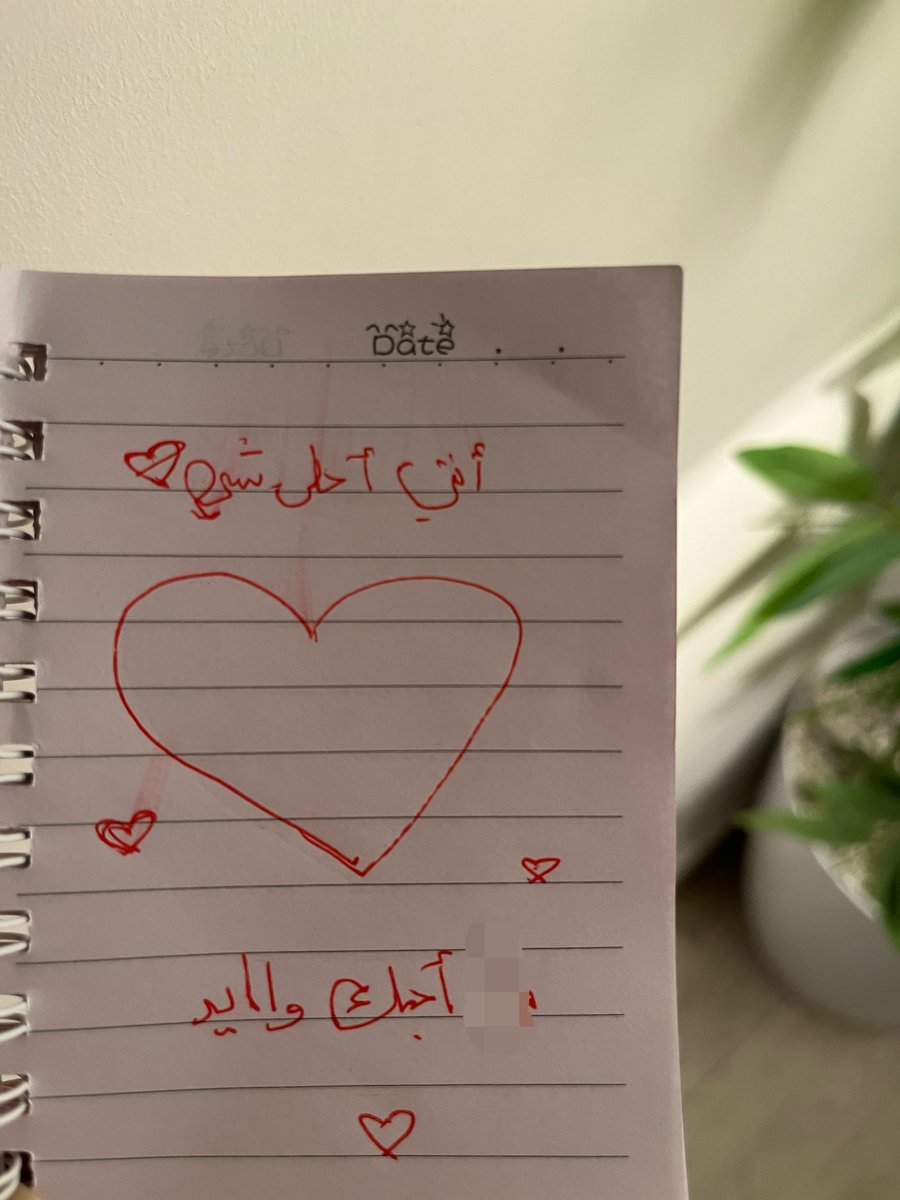 Date
أنتي أحلى شيء
أحبك واايد